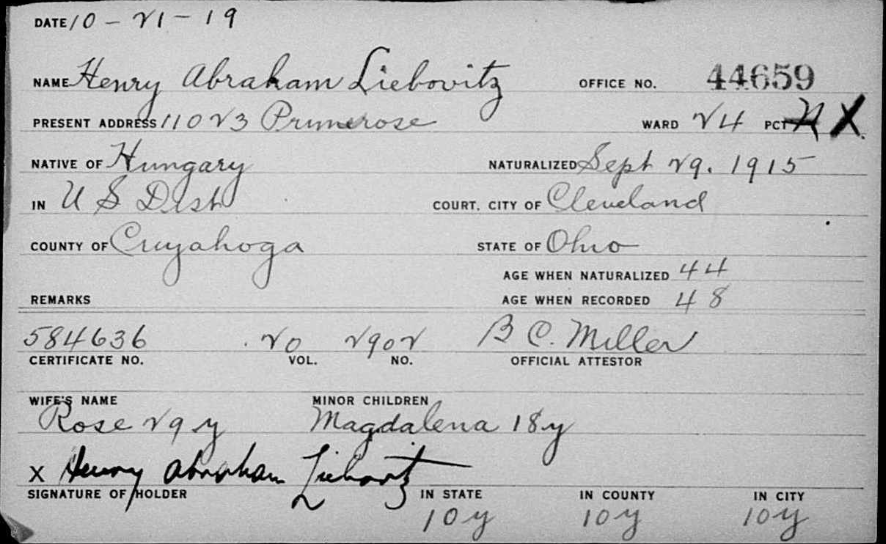 DATE 10-21-19
NAME Henry Abraham Liebovitz OFFICE NO. 44659
PRESENT ADDRESS 11023 Primerose WARD 24 PCT X
NATIVE OF Hungary NATURALIZED Sept 29. 1915
IN U S Dist COURT. CITY OF Cleveland
COUNTY OF Cuyahoga STATE OF Ohio
AGE WHEN NATURALIZED 44
REMARKS AGE WHEN RECORDED 48
584636 20 2902 B C. Miller
CERTIFICATE NO. VOL. NO. OFFICIAL ATTESTOR
WIFE'S NAME MINOR CHILDREN
Rose 29 y Magdalena 18y
X Henry Abraham Liebovitz
SIGNATURE OF HOLDER IN STATE IN COUNTY IN CITY
10 y 10 y 10 y